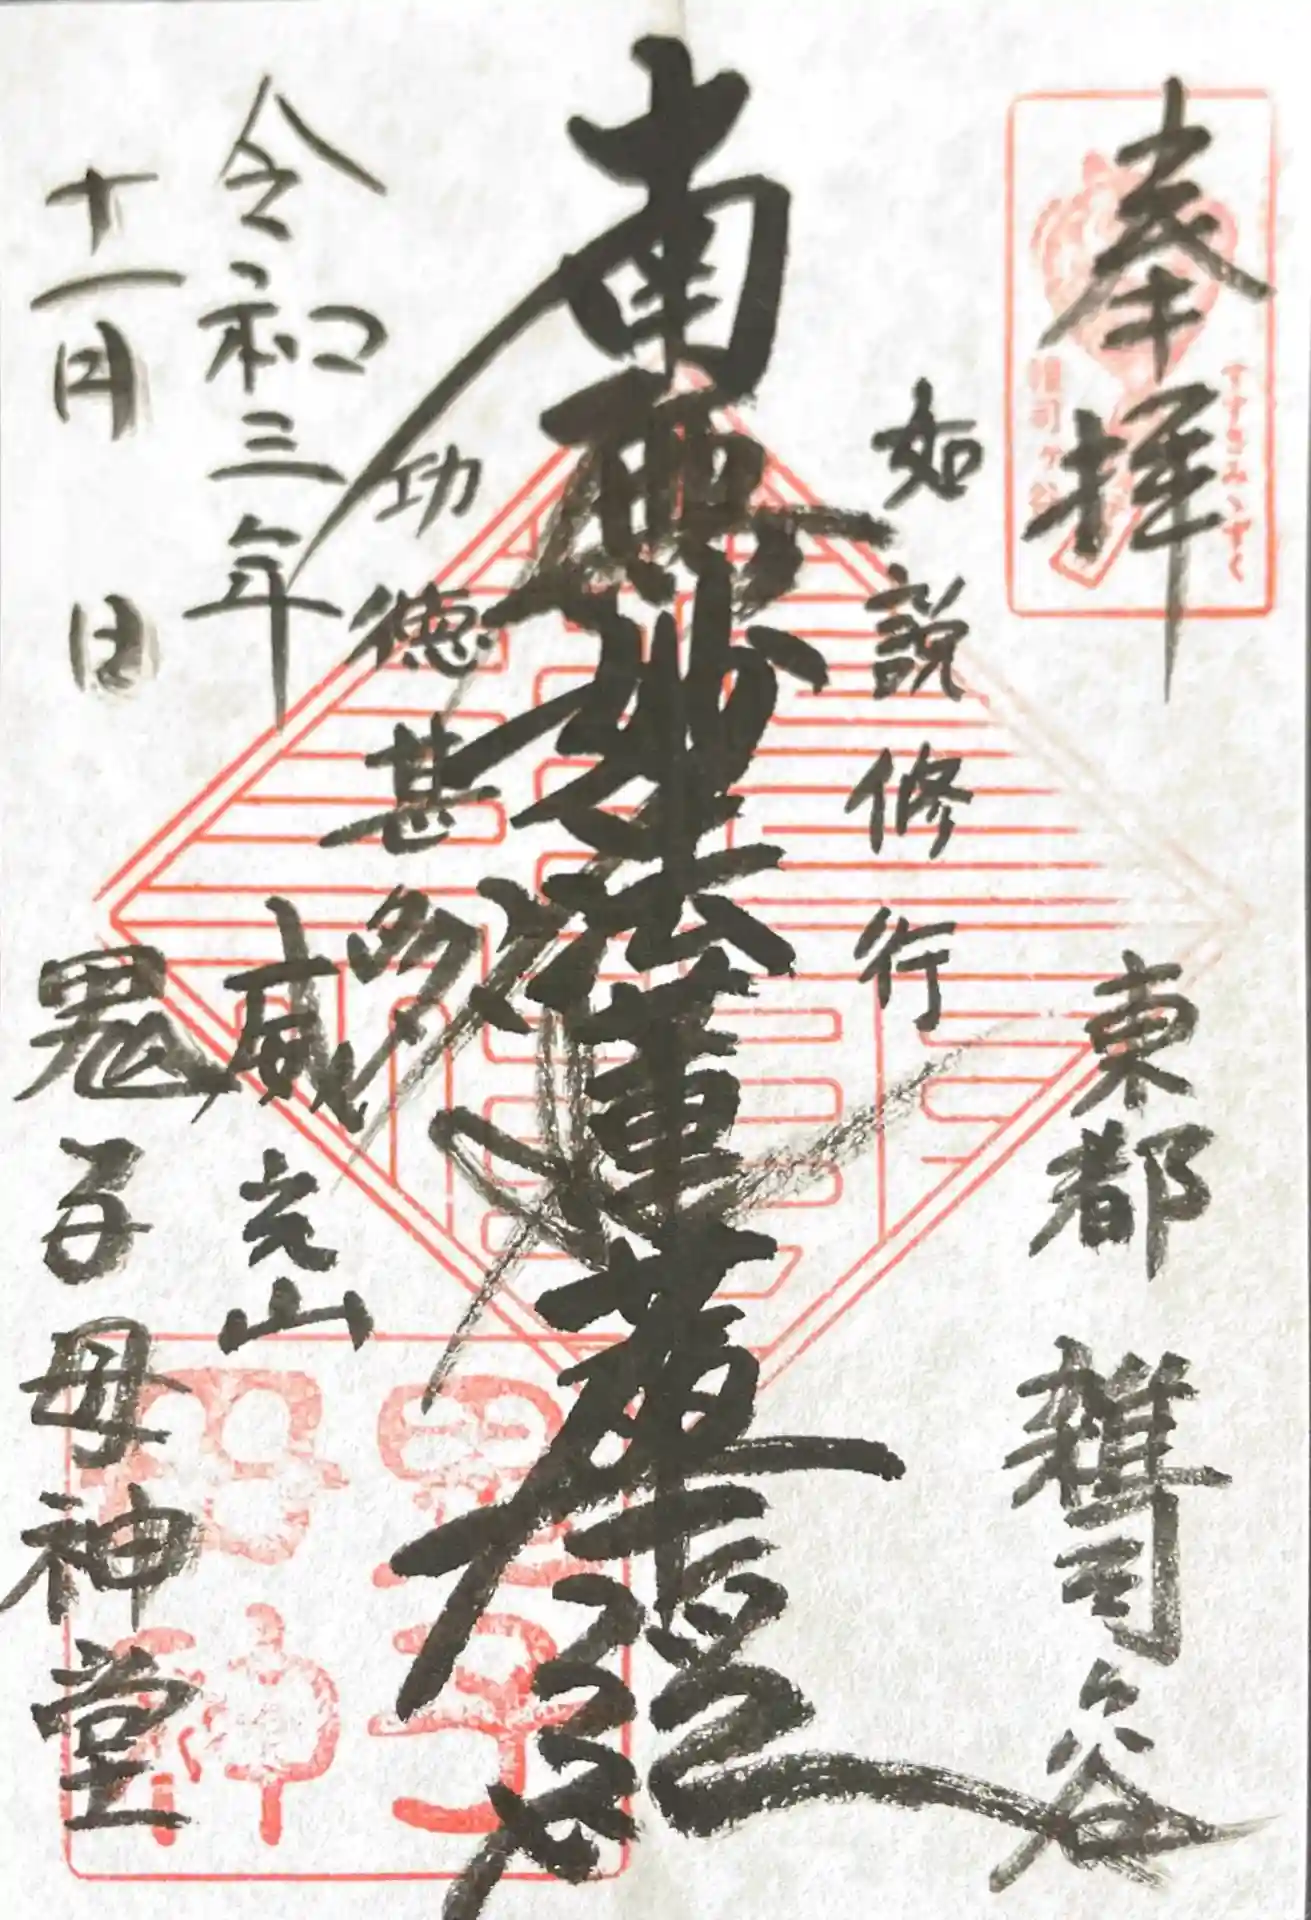 奉拝
すすきみゝずく
雑司ヶ谷
東都 雑司ヶ谷
如説修行
南無妙法蓮華経
功徳甚多
威光山
鬼子母神堂
令和三年
十一月 日
鬼子母神